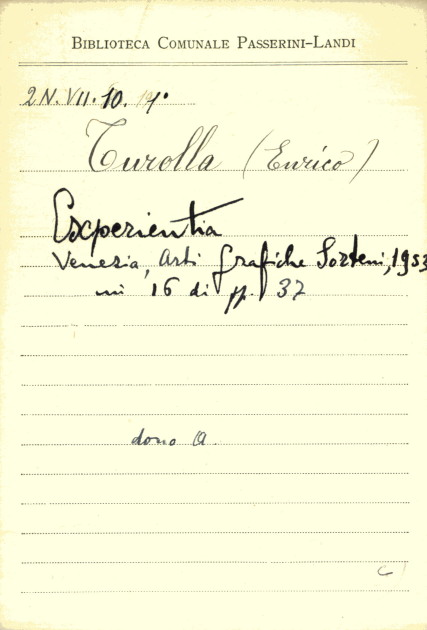 BIBLIOTECA COMUNALE PASSERINI-LANDI
2N. VII. 10.
Turolla (Enrico)
Experientia
Venezia, Arti Grafiche Sorteni, 1953
in 16 di pp. 37
dono A.
C